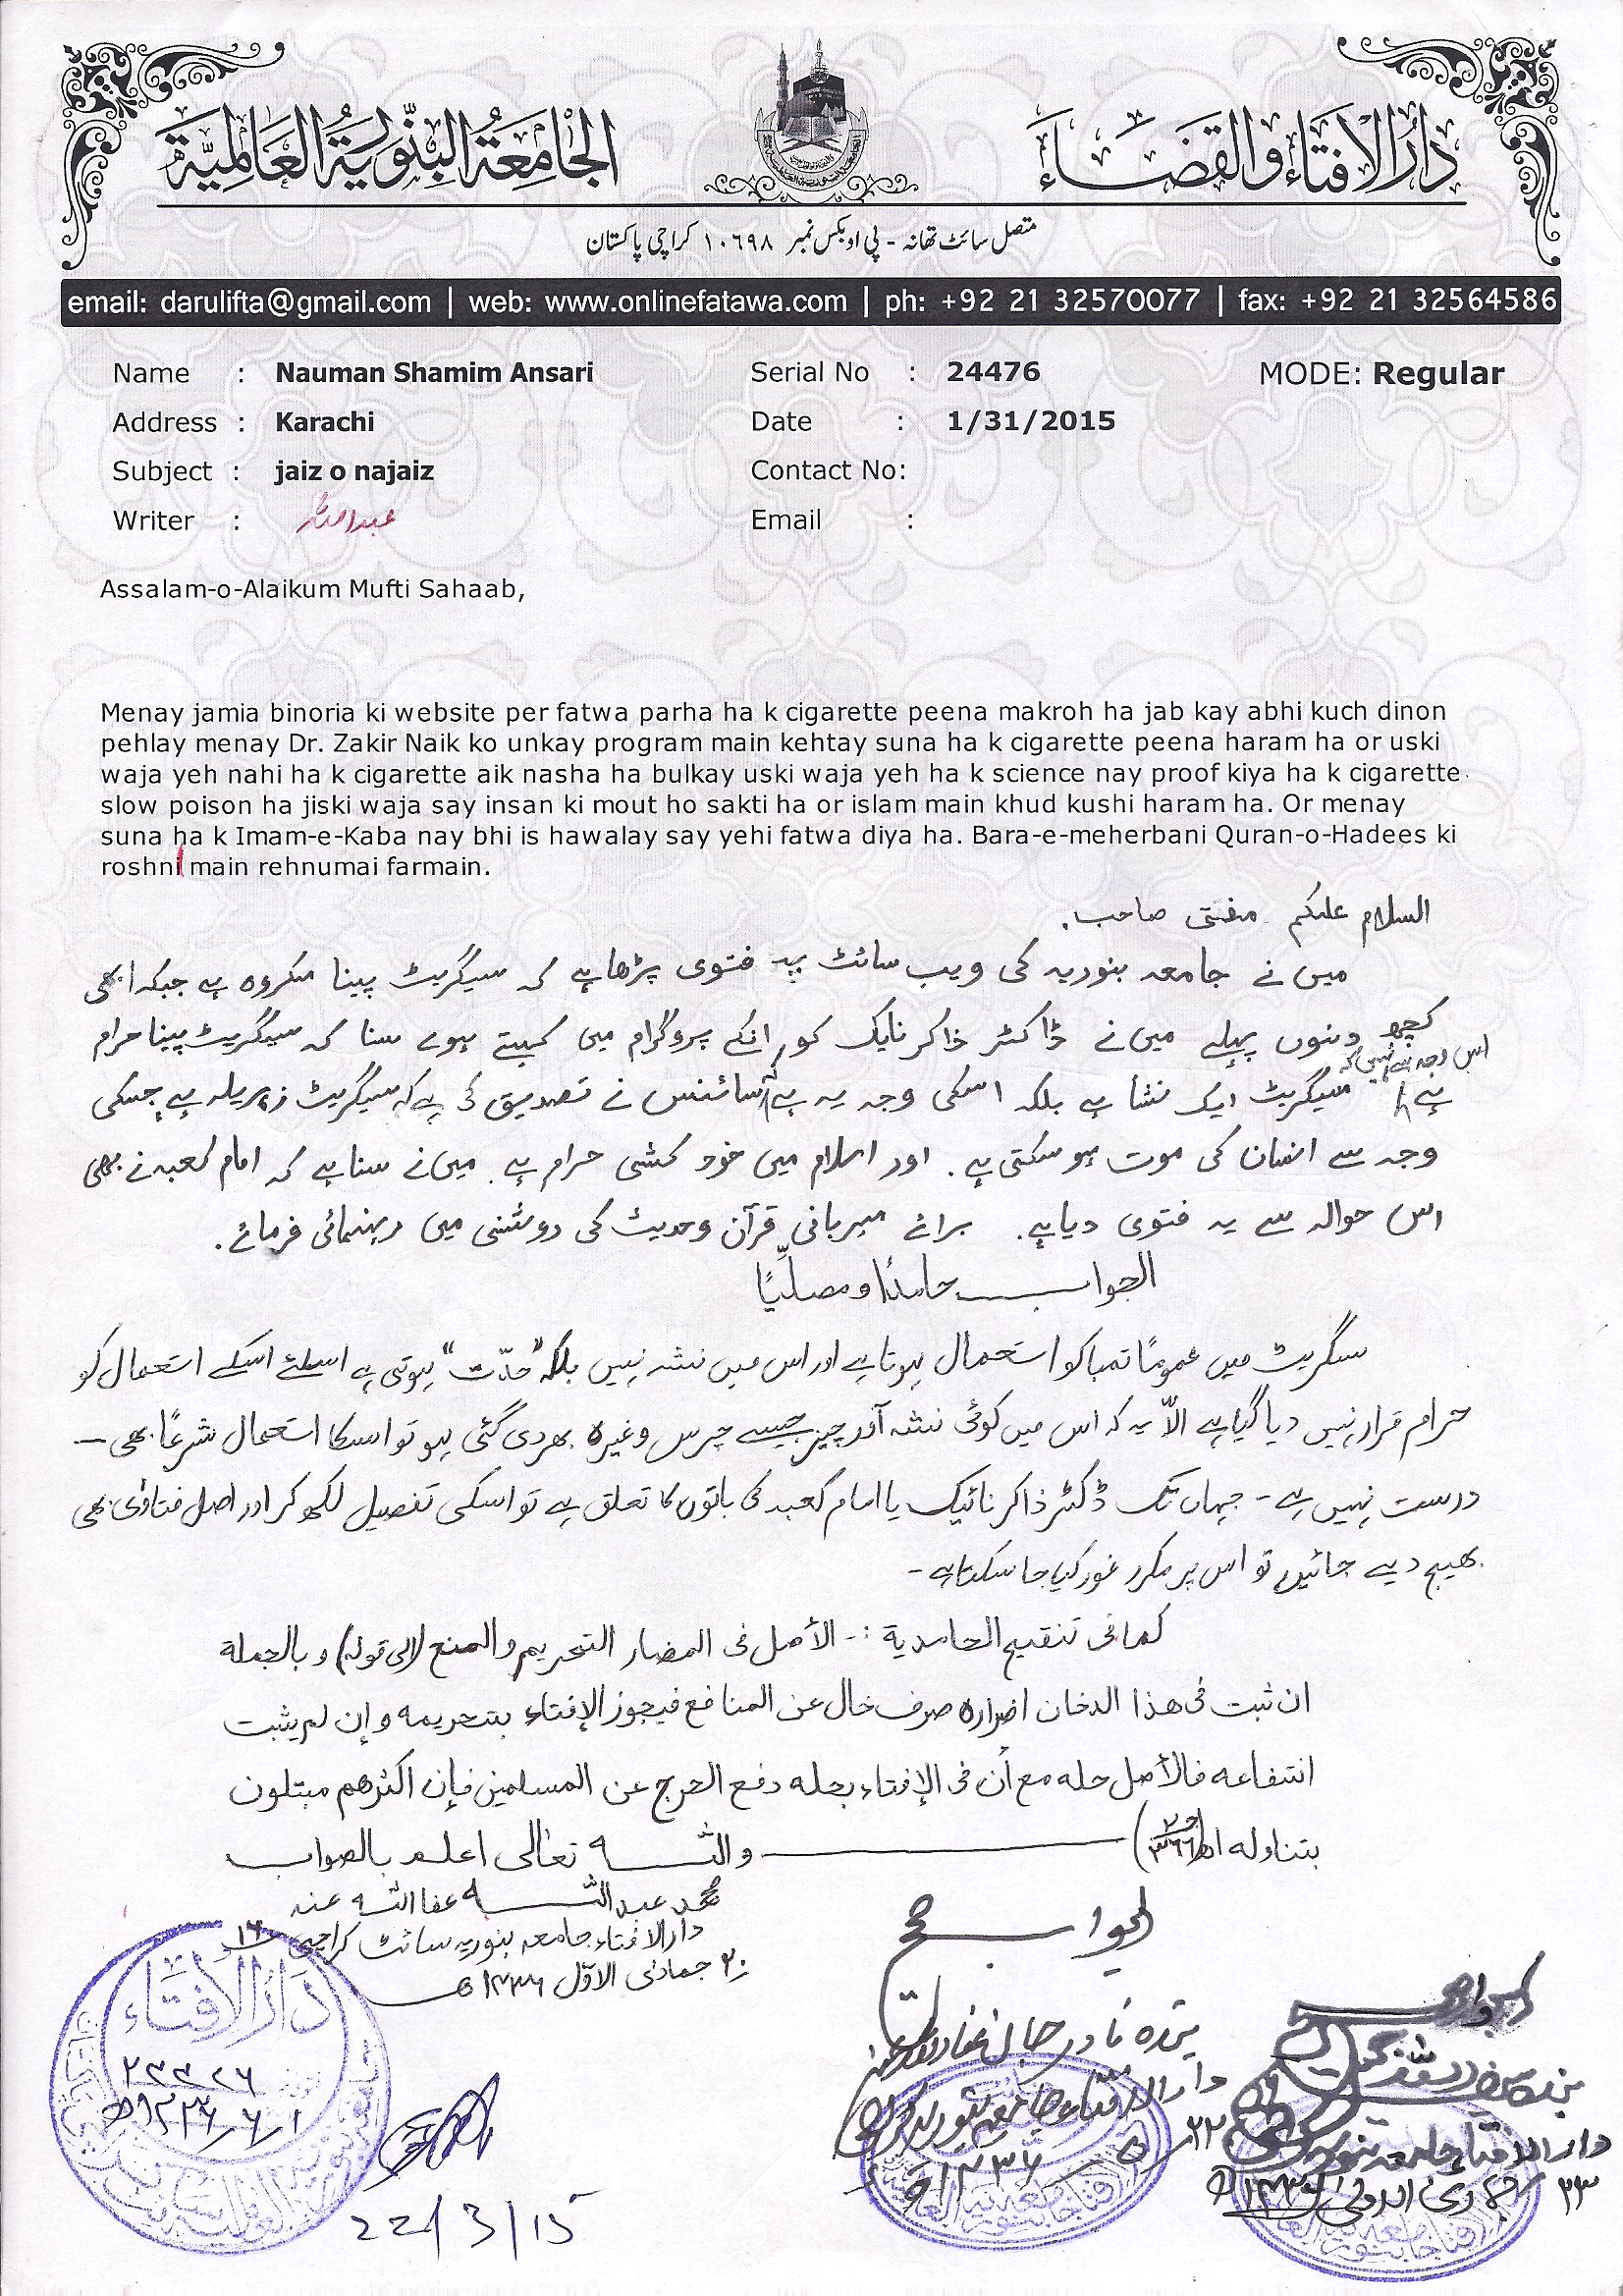 دَارُ الإفتَاء وَالقَضَاء
الجَامِعَةُ البِنّورِيَةُ العَالمِيَّة
متصل سائٹ تھانہ - پی او بکس نمبر ۱۰۶۹۸ کراچی پاکستان
email: darulifta@gmail.com | web: www.onlinefatawa.com | ph: +92 21 32570077 | fax: +92 21 32564586
Name : Nauman Shamim Ansari Serial No : 24476 MODE: Regular
Address : Karachi Date : 1/31/2015
Subject : jaiz o najaiz Contact No:
Writer : عبداللہ Email :
Assalam-o-Alaikum Mufti Sahaab,
Menay jamia binoria ki website per fatwa parha ha k cigarette peena makroh ha jab kay abhi kuch dinon
pehlay menay Dr. Zakir Naik ko unkay program main kehtay suna ha k cigarette peena haram ha or uski
waja yeh nahi ha k cigarette aik nasha ha bulkay uski waja yeh ha k science nay proof kiya ha k cigarette
slow poison ha jiski waja say insan ki mout ho sakti ha or islam main khud kushi haram ha. Or menay
suna ha k Imam-e-Kaba nay bhi is hawalay say yehi fatwa diya ha. Bara-e-meherbani Quran-o-Hadees ki
roshni main rehnumai farmain.
السلام علیکم مفتی صاحب.
میں نے جامعہ بنوریہ کی ویب سائٹ پہ فتوی پڑھا ہے کہ سیگریٹ پینا مکروہ ہے جبکہ ابھی
کچھ دنوں پہلے میں نے ڈاکٹر ذاکر نایک کو انکے پروگرام میں کہتے ہوے سنا کہ سیگریٹ پینا حرام
ہے اس وجہ سے نہیں کہ سیگریٹ ایک نشا ہے بلکہ اسکی وجہ یہ ہے سائنس نے تصدیق کی ہے کہ سیگریٹ زہریلہ ہے جسکی
وجہ سے انسان کی موت ہو سکتی ہے. اور اسلام میں خود کشی حرام ہے. میں نے سنا ہے کہ امام کعبہ نے بھی
اس حوالہ سے یہ فتوی دیا ہے. برائے مہربانی قرآن وحدیث کی روشنی میں رہنمائی فرمائے.
الجواب حامدًا ومصلیًّا
سگریٹ میں عمومًا تمباکو استعمال ہوتا ہے اور اس میں نشہ نہیں بلکہ "حدّت" ہوتی ہے اسلئے اسکے استعمال کو
حرام قرار نہیں دیا گیا ہے الاّ یہ کہ اس میں کوئی نشہ آور چیز جیسے چرس وغیرہ بھر دی گئی ہو تو اسکا استعمال شرعًا بھی
درست نہیں ہے - جہاں تک ڈکٹر ذاکر نائیک یا امام کعبہ کی باتوں کا تعلق ہے تو اسکی تفصیل لکھ کر اور اصل فتاوٰی بھی
بھیج دیے جائیں تو اس پر مکرر غور کیا جا سکتا ہے -
كما فى تنقيح الحامدية :- الأصل فى المضار التحريم والمنع (الى قوله) و بالجملة
ان ثبت فى هذا الدخان اضراره صرف خال عن المنافع فيجوز الإفتاء بتحريمه وإن لم يثبت
انتفاعه فالأصل حله مع أن فى الإفتاء بحله دفع الحرج عن المسلمين فإن اكثرهم مبتلون
بتناوله اھ (ج۲ ۳۶۶) واللہ تعالٰی اعلم بالصواب
محمد عبداللہ عفا اللہ عنہ
دار الافتاء جامعہ بنوریہ سائٹ کراچی ۱۶
۲۰ جمادی الاوّل ۱۴۳۶ھ
الجواب صحیح
بندہ نادر جان
دار الافتاء جامعہ بنوریہ
دَارُ الإفتَاء
۲۴۴۷۶
دار الافتاء جامعہ بنوریہ
22/3/15